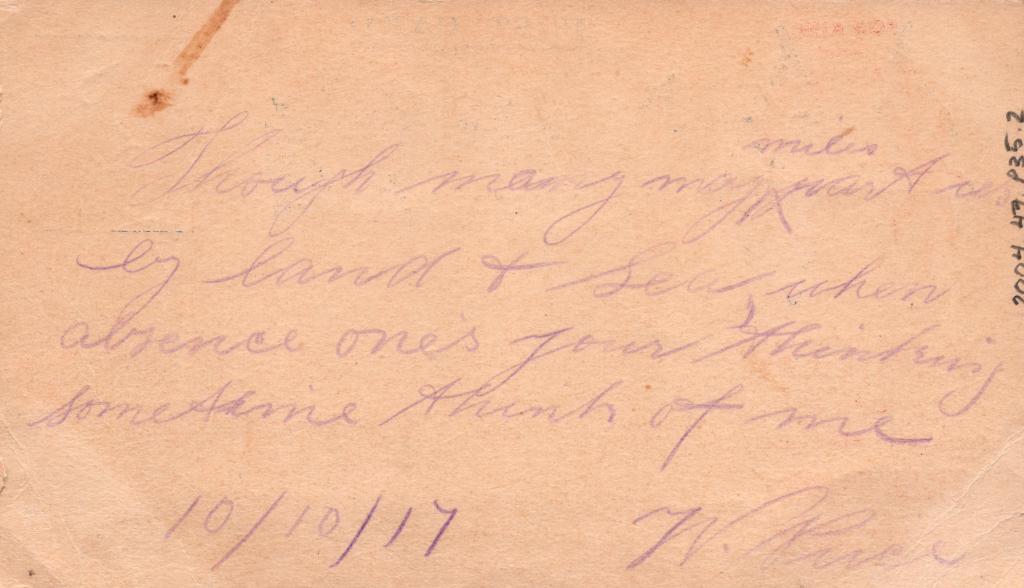 Though many may miles part us
by land & Sea, when
absence one's your thinking
sometime think of me
10/10/17 W.
2004 47 P35.2